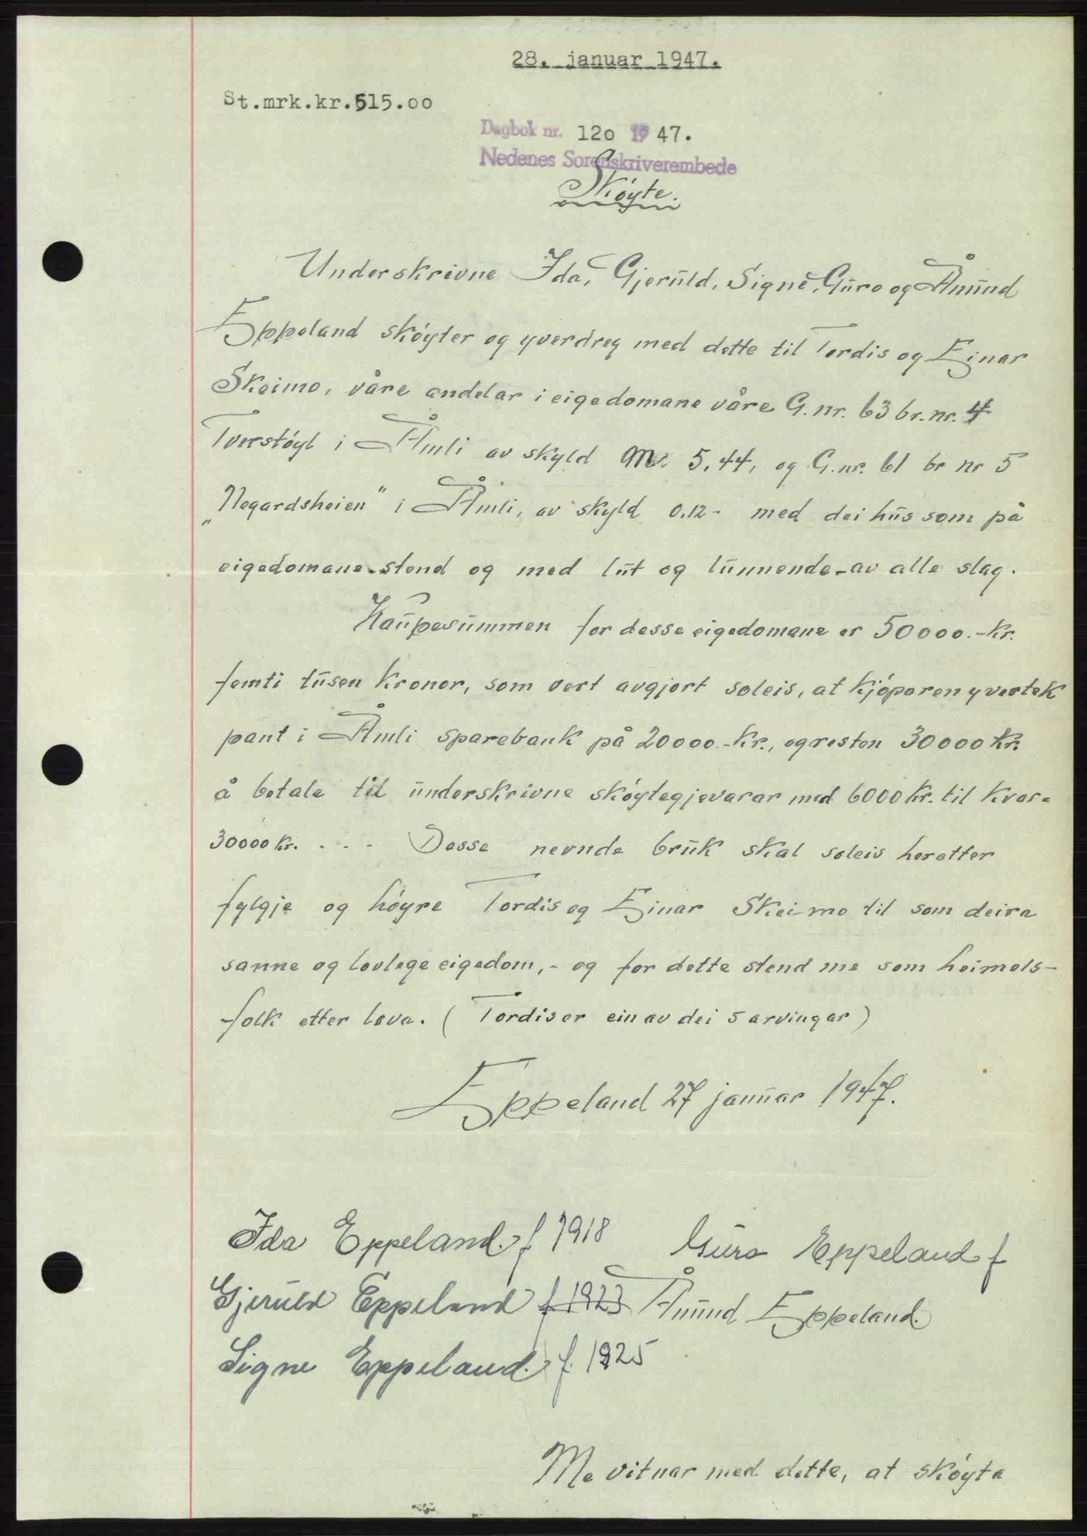 28. januar 1947.
St.mrk.kr.515.oo
Dagbok nr. 12o 1947.
Nedenes Sorenskriverembede
Skøyte.
Underskrivne Ida, Gjeruld, Signe, Guro og Åmund
Eppeland skøyter og yverdreg med dette til Tordis og Einar
Skeimo, våre andelar i eigedomane våre G.nr. 63 br.nr. 4
Tverstøyl i Åmli av skyld Mr 5,44, og G.nr. 61 br nr 5
"Negardsheien" i Åmli, av skyld 0.12- med dei hus som på
eigedomane stend og med lut og lunnende av alle slag.
Kaupesummen for desse eigedomane er 50000.-Kr.
femti tusen kroner, som vert avgjort soleis, at kjøparen yvertek
pant i Åmli sparebank på 20000.-Kr., og resten 30000 Kr.
å betale til underskrivne skøytegjevarar med 6000 Kr. til kvar=
30000 Kr. . - - Desse nevnde bruk skal soleis heretter
fylgje og høyre Tordis og Einar Skeimo til som deira
sanne og lovlege eigedom,- og for dette stend me som heimels-
folk etter lova. (Tordis er ein av dei 5 arvingar)
Eppeland 27 januar 1947.
Ida Eppeland. f 1918 Guro Eppeland f
Gjeruld Eppeland f 1923 Åmund Eppeland.
Signe Eppeland. f. 1925
Me vitnar med dette, at skøyta